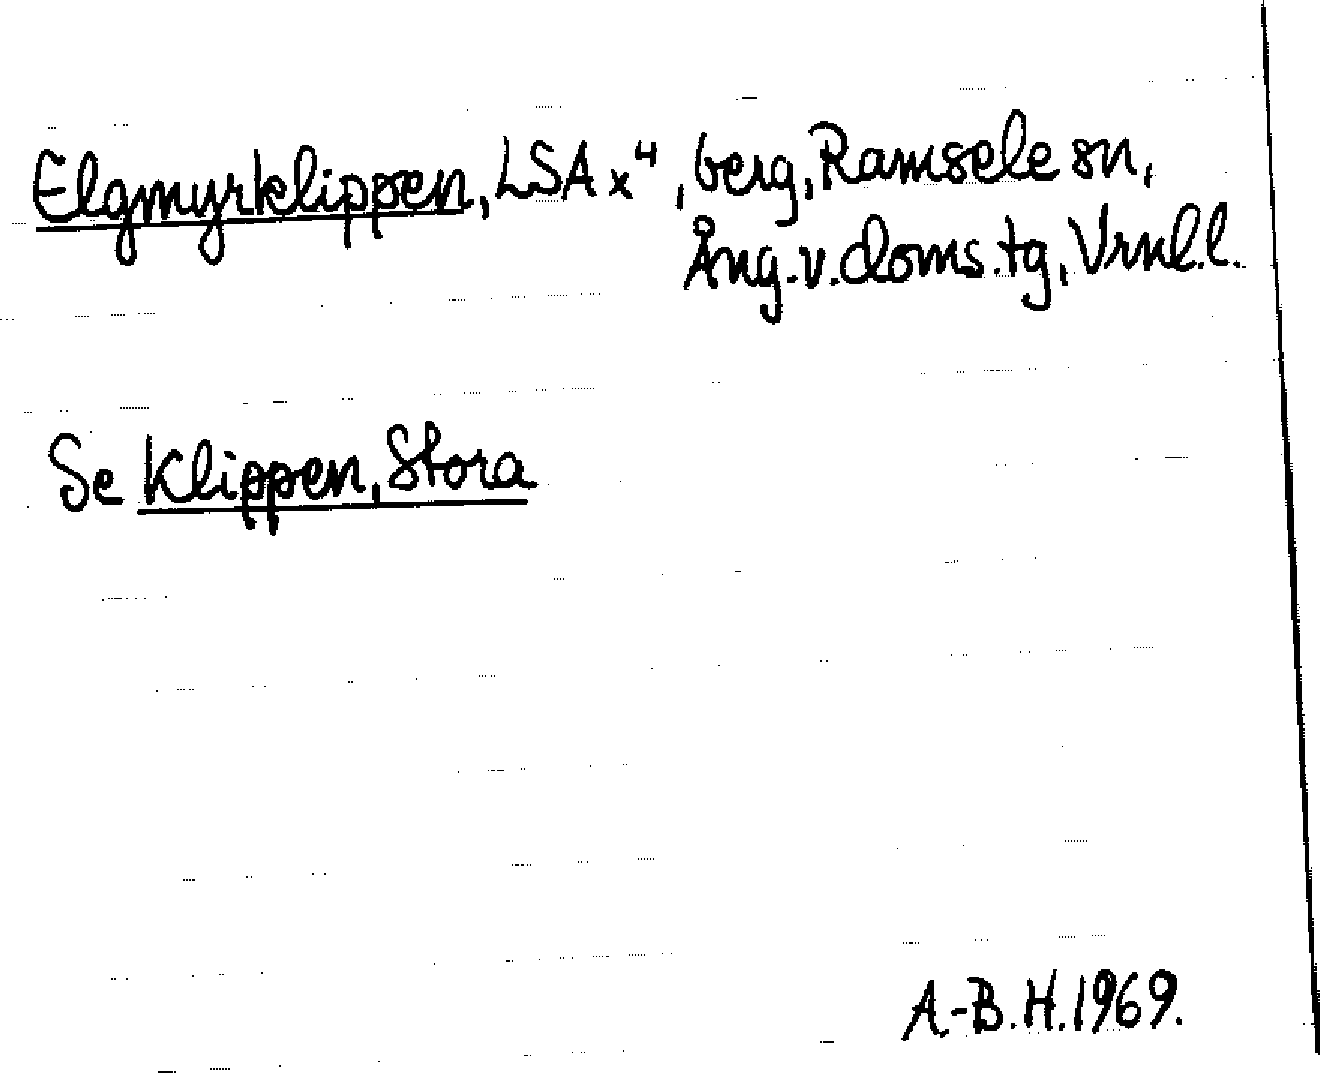 Elgmyrklippen, LSA x⁴, berg, Ramsele sn,
Ång. v. doms. tg, Vrnl. l.
Se Klippen, Stora
A.-B. H. 1969.